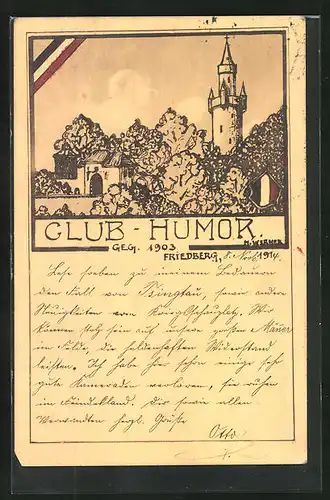 CLUB - HUMOR.
GEG. 1903.
H. WERNER
FRIEDBERG, 8. Nov. 1914.
Lese soeben zu meinem Bedauern
den Fall von Tsingtau, sowie andere
Neuigkeiten vom Kriegsschauplatz. Wir
können stolz sein auf unsere großen Männer
im Felde, die heldenhaften Widerstand
leisten. Ich habe hier schon einige sehr
gute Kameraden verloren, sie ruhen
im Feindesland. Dir sowie allen
Verwandten herzl. Grüße
Otto